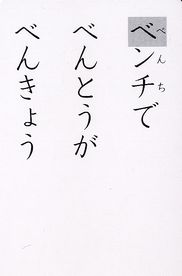 ベンチで
べんち
べんとうが
べんきょう